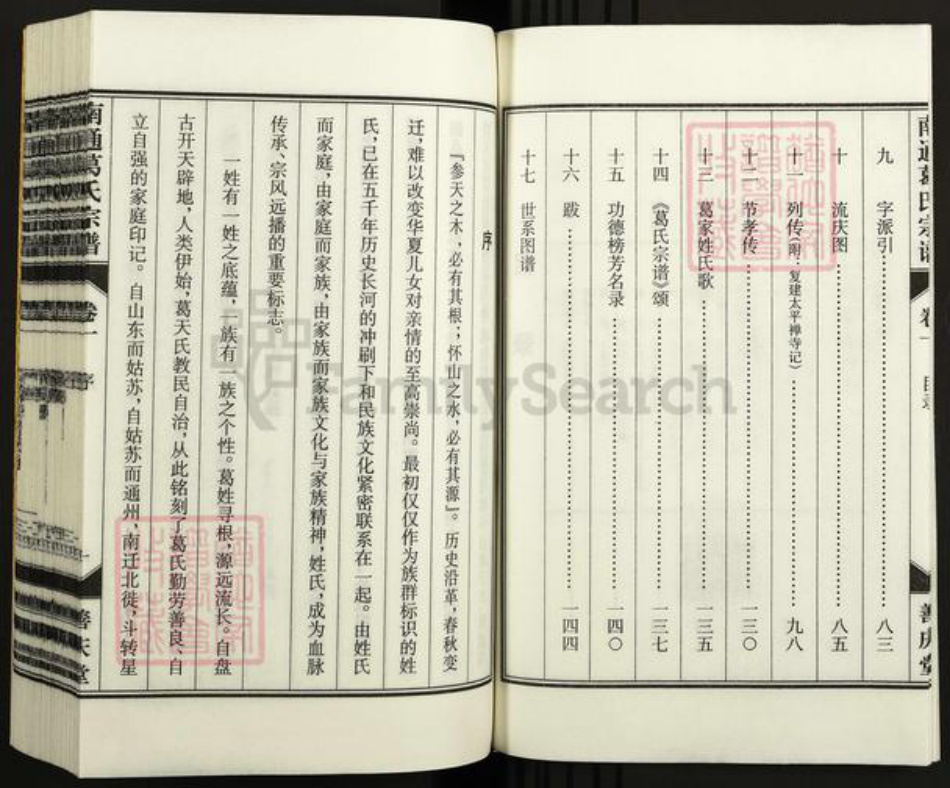 南通葛氏宗谱
卷一
目录
善庆堂
九 字派引 八三
十 流庆图 八五
十一 列传（附：复建太平禅寺记） 九八
十二 节孝传 一三〇
十三 葛家姓氏歌 一三五
十四 《葛氏宗谱》颂 一三七
十五 功德榜芳名录 一四〇
十六 跋 一四四
十七 世系图谱
序
『参天之木，必有其根；怀山之水，必有其源』。历史沿革，春秋变
迁，难以改变华夏儿女对亲情的至高崇尚。最初仅仅作为族群标识的姓
氏，已在五千年历史长河的冲刷下和民族文化紧密联系在一起。由姓氏
而家庭，由家庭而家族，由家族而家族文化与家族精神，姓氏，成为血脉
传承、宗风远播的重要标志。
一姓有一姓之底蕴，一族有一族之个性。葛姓寻根，源远流长。自盘
古开天辟地，人类伊始，葛天氏教民自治，从此铭刻了葛氏勤劳善良、自
立自强的家庭印记。自山东而姑苏，自姑苏而通州，南迁北徙，斗转星
南通葛氏宗谱
卷一
序
一
善庆堂
FamilySearch